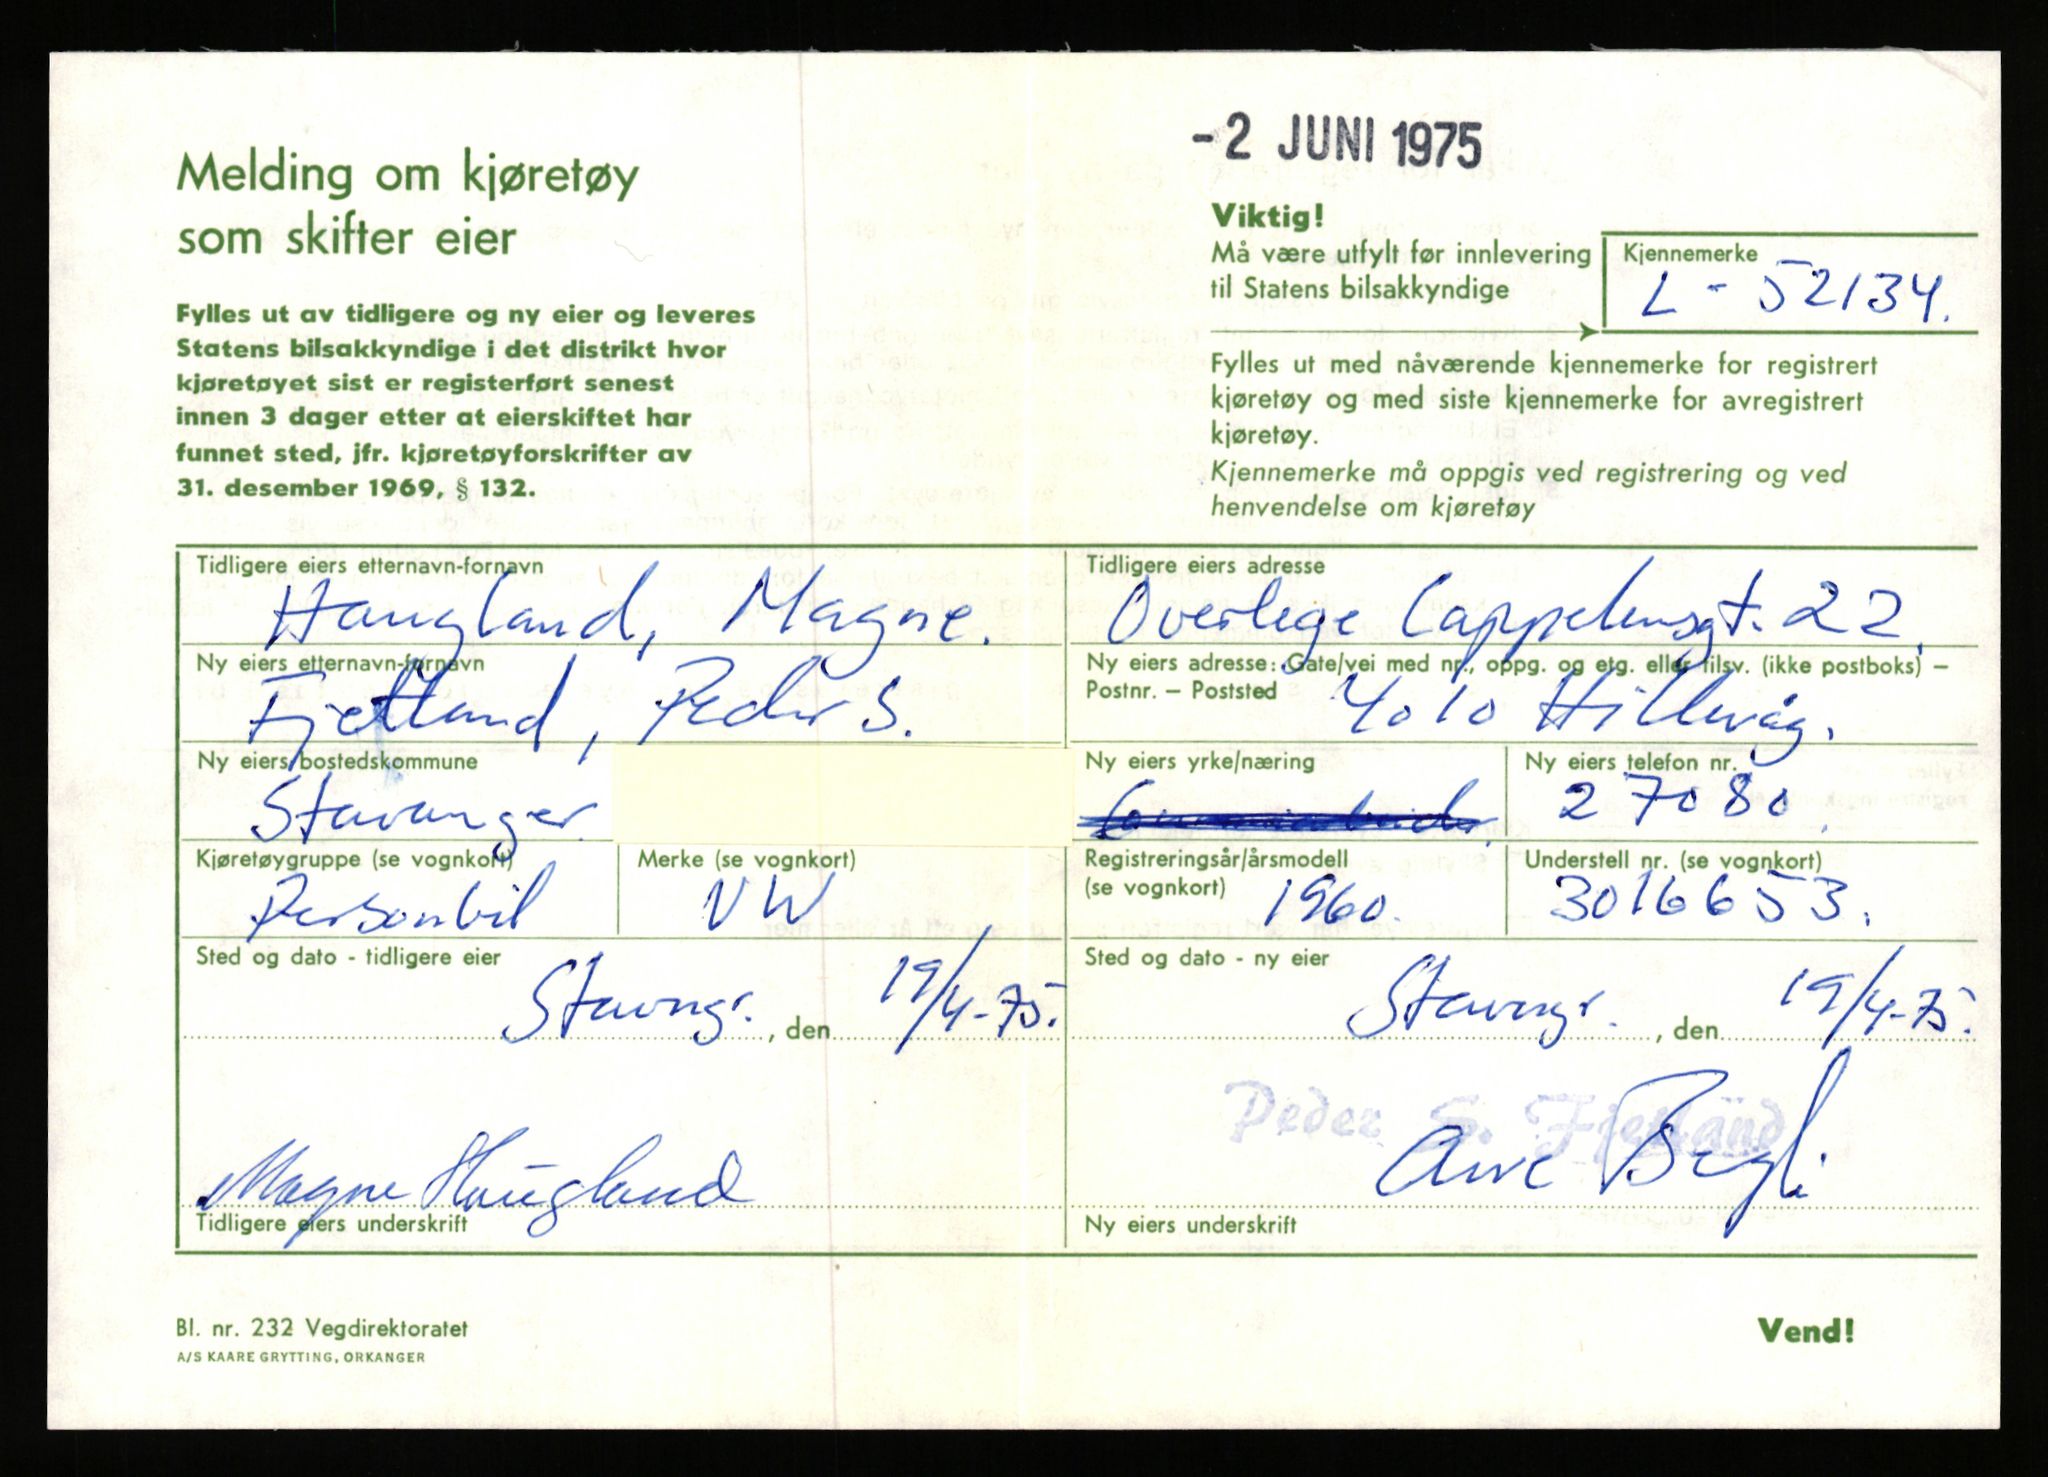 -2 JUNI 1975
Melding om kjøretøy
som skifter eier
Fylles ut av tidligere og ny eier og leveres
Statens bilsakkyndige i det distrikt hvor
kjøretøyet sist er registerført senest
innen 3 dager etter at eierskiftet har
funnet sted, jfr. kjøretøyforskrifter av
31. desember 1969, § 132.
Viktig!
Må være utfylt før innlevering
til Statens bilsakkyndige
Kjennemerke
L - 52134.
Fylles ut med nåværende kjennemerke for registrert
kjøretøy og med siste kjennemerke for avregistrert
kjøretøy.
Kjennemerke må oppgis ved registrering og ved
henvendelse om kjøretøy
Tidligere eiers etternavn-fornavn
Haugland, Magne.
Tidligere eiers adresse
Overlege Cappelensgt. 22.
Ny eiers etternavn-fornavn
Fjetland, Peder S.
Ny eiers adresse: Gate/vei med nr., oppg. og etg. eller tilsv. (ikke postboks) –
Postnr. – Poststed
4010 Hillevåg.
Ny eiers bostedskommune
Stavanger
Ny eiers yrke/næring
Ny eiers telefon nr.
27080.
Kjøretøygruppe (se vognkort)
Personbil
Merke (se vognkort)
VW
Registreringsår/årsmodell
(se vognkort)
1960.
Understell nr. (se vognkort)
3016653.
Sted og dato - tidligere eier
Stavngr. , den 19/4-75.
Sted og dato - ny eier
Stavngr. , den 19/4-75.
Magne Haugland
Tidligere eiers underskrift
Peder S. Fjetland
Ny eiers underskrift
Bl. nr. 232 Vegdirektoratet
A/S KAARE GRYTTING, ORKANGER
Vend!